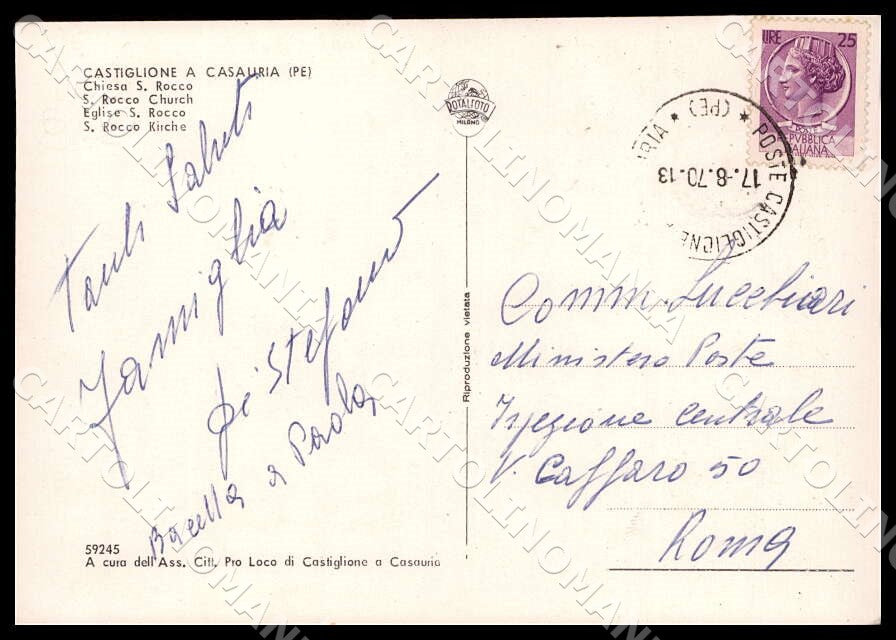 CASTIGLIONE A CASAURIA (PE)
Chiesa S. Rocco
S. Rocco Church
Eglise S. Rocco
S. Rocco Kirche
ROTALFOTO
MILANO
LIRE 25
POSTE
REPUBBLICA
ITALIANA
POSTE CASTIGLIONE
(PE)
17.-8.70.-13
Tanti Saluti
Famiglia
Di Stefano
a Paola
Riproduzione vietata
Comm. Lucchiari
Ministero Poste
Ispezione centrale
V. Caffaro 50
Roma
59245
A cura dell'Ass. Citt. Pro Loco di Castiglione a Casauria
CARTOLINOMANIA